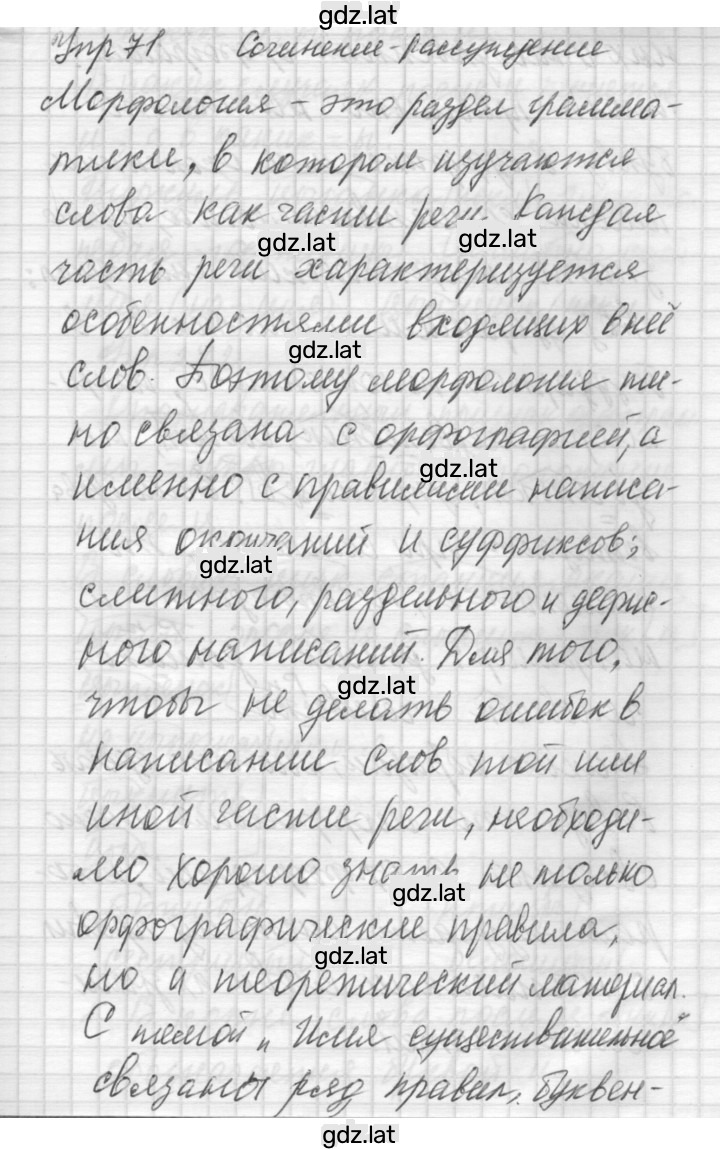 gdz.lat
Упр 71 Сочинение-рассуждение
Морфология – это раздел грамма-
тики, в котором изучаются
слова как части речи. Каждая
gdz.lat
gdz.lat
часть речи характеризуется
особенностями входящих в неё
gdz.lat
слов. Поэтому морфология тес-
но связана с орфографией, а
gdz.lat
именно с правилами написа-
ния окончаний и суффиксов;
gdz.lat
слитного, раздельного и дефис-
ного написаний. Для того,
gdz.lat
чтобы не делать ошибок в
написании слов той или
иной части речи, необходи-
мо хорошо знать не только
gdz.lat
орфографические правила,
gdz.lat
но и теоретический материал.
С темой „Имя существительное"
связаны ряд правил: буквен-
gdz.lat